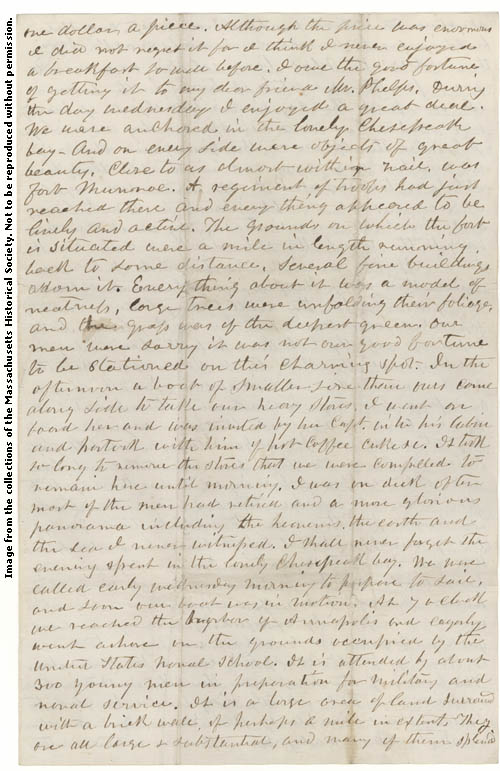 one dollar a piece. Although the price was enormous
I did not regret it for I think I never enjoyed
a breakfast so well before. I owe the good fortune
of getting it to my dear friend Mr. Phelps. During
the day wednesday I enjoyed a great deal.
We were anchored in the lonely Chesepeack
bay - And on every side were objects of great
beauty. Close to us almost within hail, was
Fort Munroe. A regiment of troops had just
reached there and every thing appeared to be
lively and active. The grounds on which the fort
is situated were a mile in length running
back to some distance. Several fine buildings
adorn it. Every thing about it was a model of
neatness, large trees were unfolding their foliage,
and the grass was of the deepest green. our
men were sorry it was not our good fortune
to be stationed on this charming spot. In the
afternoon a boat of smaller size than ours came
along side to take our heavy stores. I went on
board her and was invited by her Capt. in to his Cabin
and partook with him of hot Coffee cake &c. It took
so long to remove the stores that we were compelled to
remain here until morning. I was on deck after
most of the men had retired and a more glorious
panorama including the heavens, the earth and
the sea I never witnessed. I shall never forget the
evening spent in the lonely Chesepeack bay. We were
called early wednesday morning to prepare to sail,
and soon our boat was in motion. At 7 o clock
we reached the harbor of Annapolis and eagerly
went ashore on the grounds occupied by the
United States Naval School. It is attended by about
300 young men in preparation for Military and
naval service. It is a large area of land surround
with a brick wall, of perhaps a mile in extent. They
are all large & substantial, and many of them splendid
Image from the collections of the Massachusetts Historical Society. Not to be reproduced without permission.